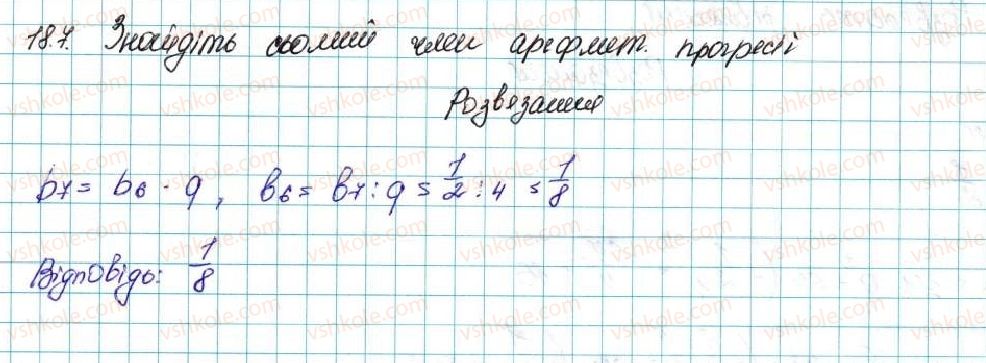 18.7. Знайдіть сьомий член арефмет. прогресії
Розвязання
b₇ = b₆ · q, b₆ = b₇ : q = 1/2 : 4 = 1/8
Відповідь: 1/8